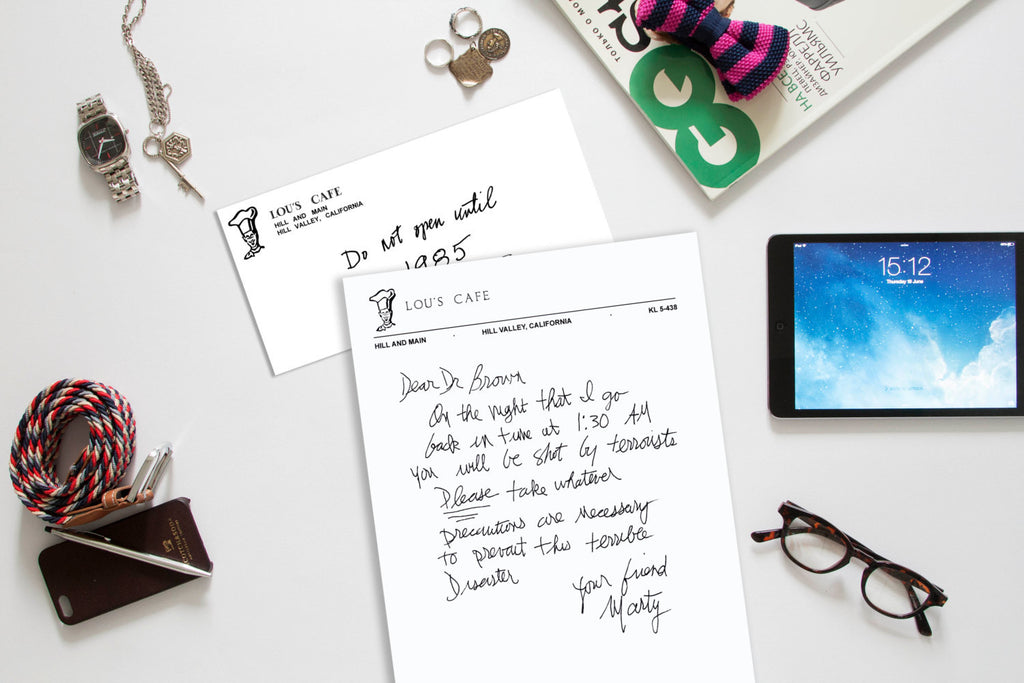 LOU'S CAFE
HILL AND MAIN
HILL VALLEY, CALIFORNIA
Do not open until
1985
LOU'S CAFE
HILL AND MAIN · HILL VALLEY, CALIFORNIA · KL 5-438
Dear Dr Brown
On the night that I go
back in time at 1:30 AM
you will be shot by terrorists
Please take whatever
precautions are necessary
to prevent this terrible
Disaster
Your friend
Marty
ТОЛЬКО О
GQ
НА ВСЕ
ПЕВЕЦ
ДИЗАЙНЕР
ФАРРЕЛЛ
УИЛЬЯМС
15:12
Thursday 18 June